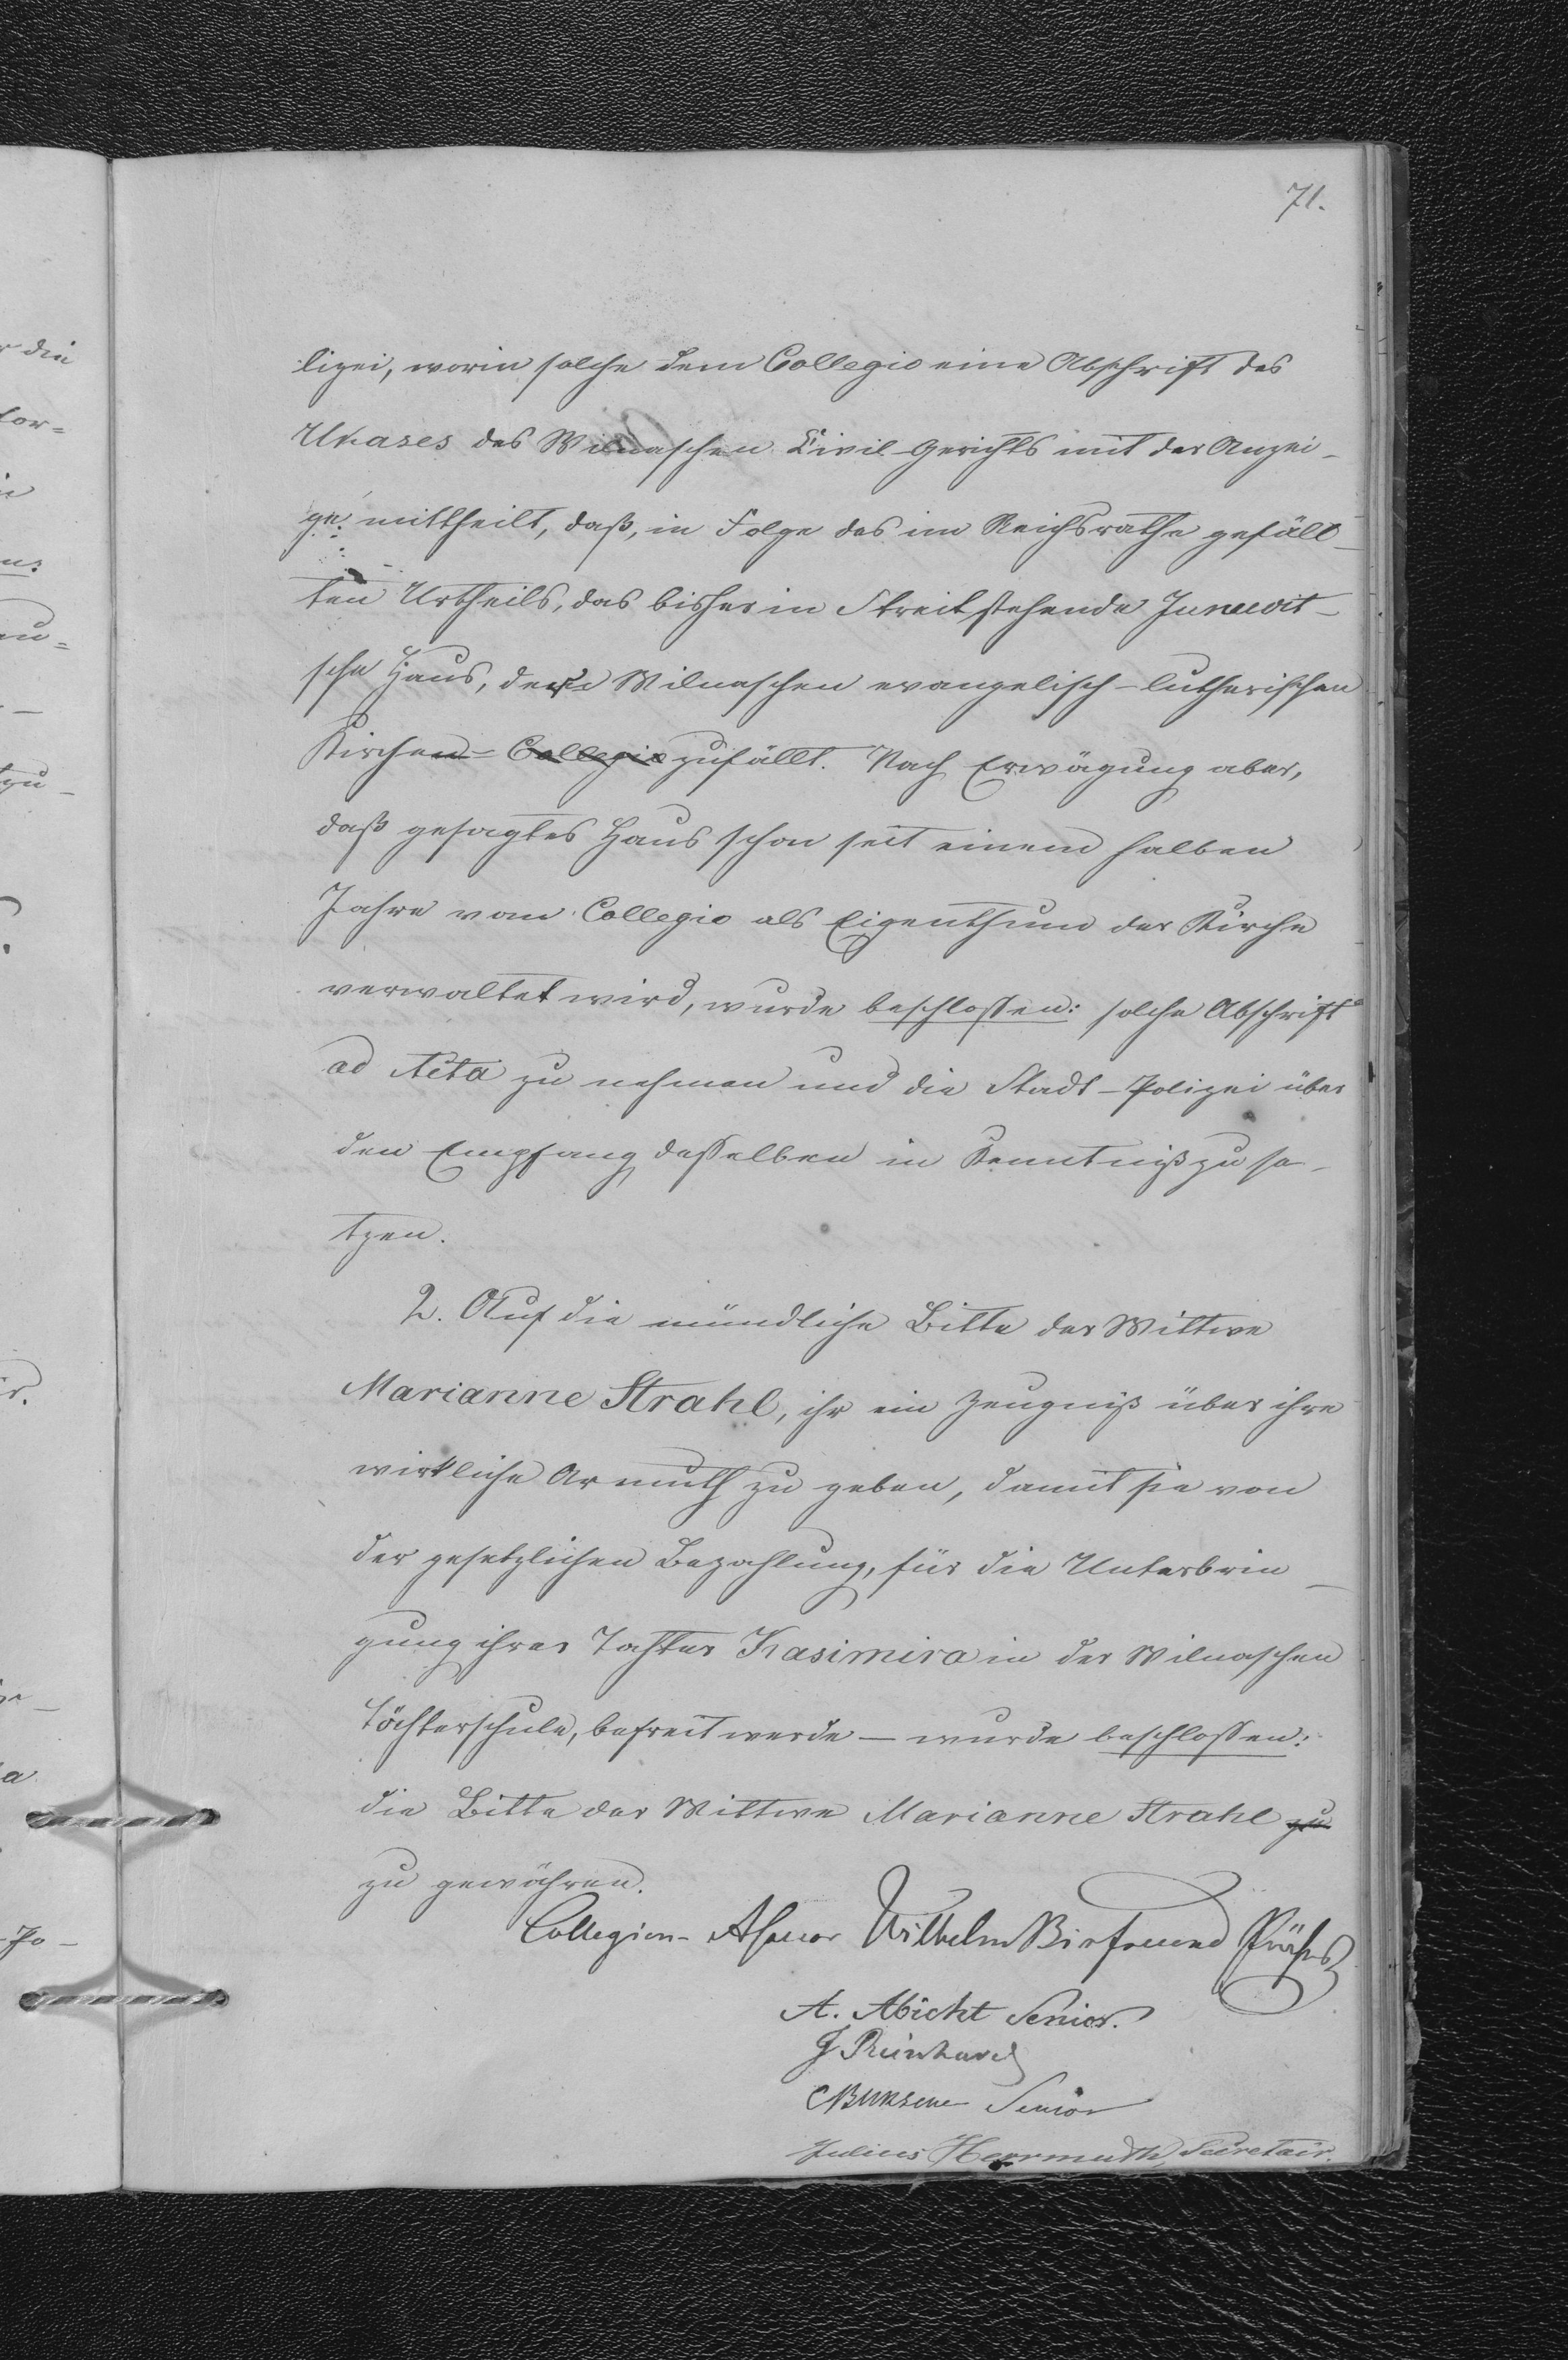 71.
lizei, worin solche dem Collegio eine Abschrift des
Ukases des Wilnaschen Civil-Gerichts mit der Anzei-
ge mittheilt, daß, in Folge des im Reichsrathe gefäll-
ten Urtheils, das bisher in Streit stehende
sche Haus, der Wilnaschen evangelisch-lutherischen
Kirchen-Collegio zufällt. Nach Erwägung aber,
daß gesagtes Haus schon seit einem halben
Jahre vom Collegio als Eigenthum der Kirche
verwaltet wird, wurde beschlossen: solche Abschrift
ad Acta zu nehmen und die Stadt-Polizei über
den Empfang desselben in Kenntniß zu se-
tzen.
2. Auf die mündliche Bitte der Wittwe
Marianne Strahl, ihr ein Zeugniß über ihre
wirkliche Armuth zu geben, damit sie von
der gesetzlichen Bezahlung, für die Unterbrin-
gung ihrer Tochter Kasimira in der Wilnaschen
Töchterschule, befreit werde - wurde beschlossen:
die Bitte der Wittwe Marianne Strahl zu
zu gewähren.
Collegien-Assessor Wilhelm Birfreund Präses
A. Abicht Senior.
J Reinhard
Senior
Julius Herrmuth, Secretair.